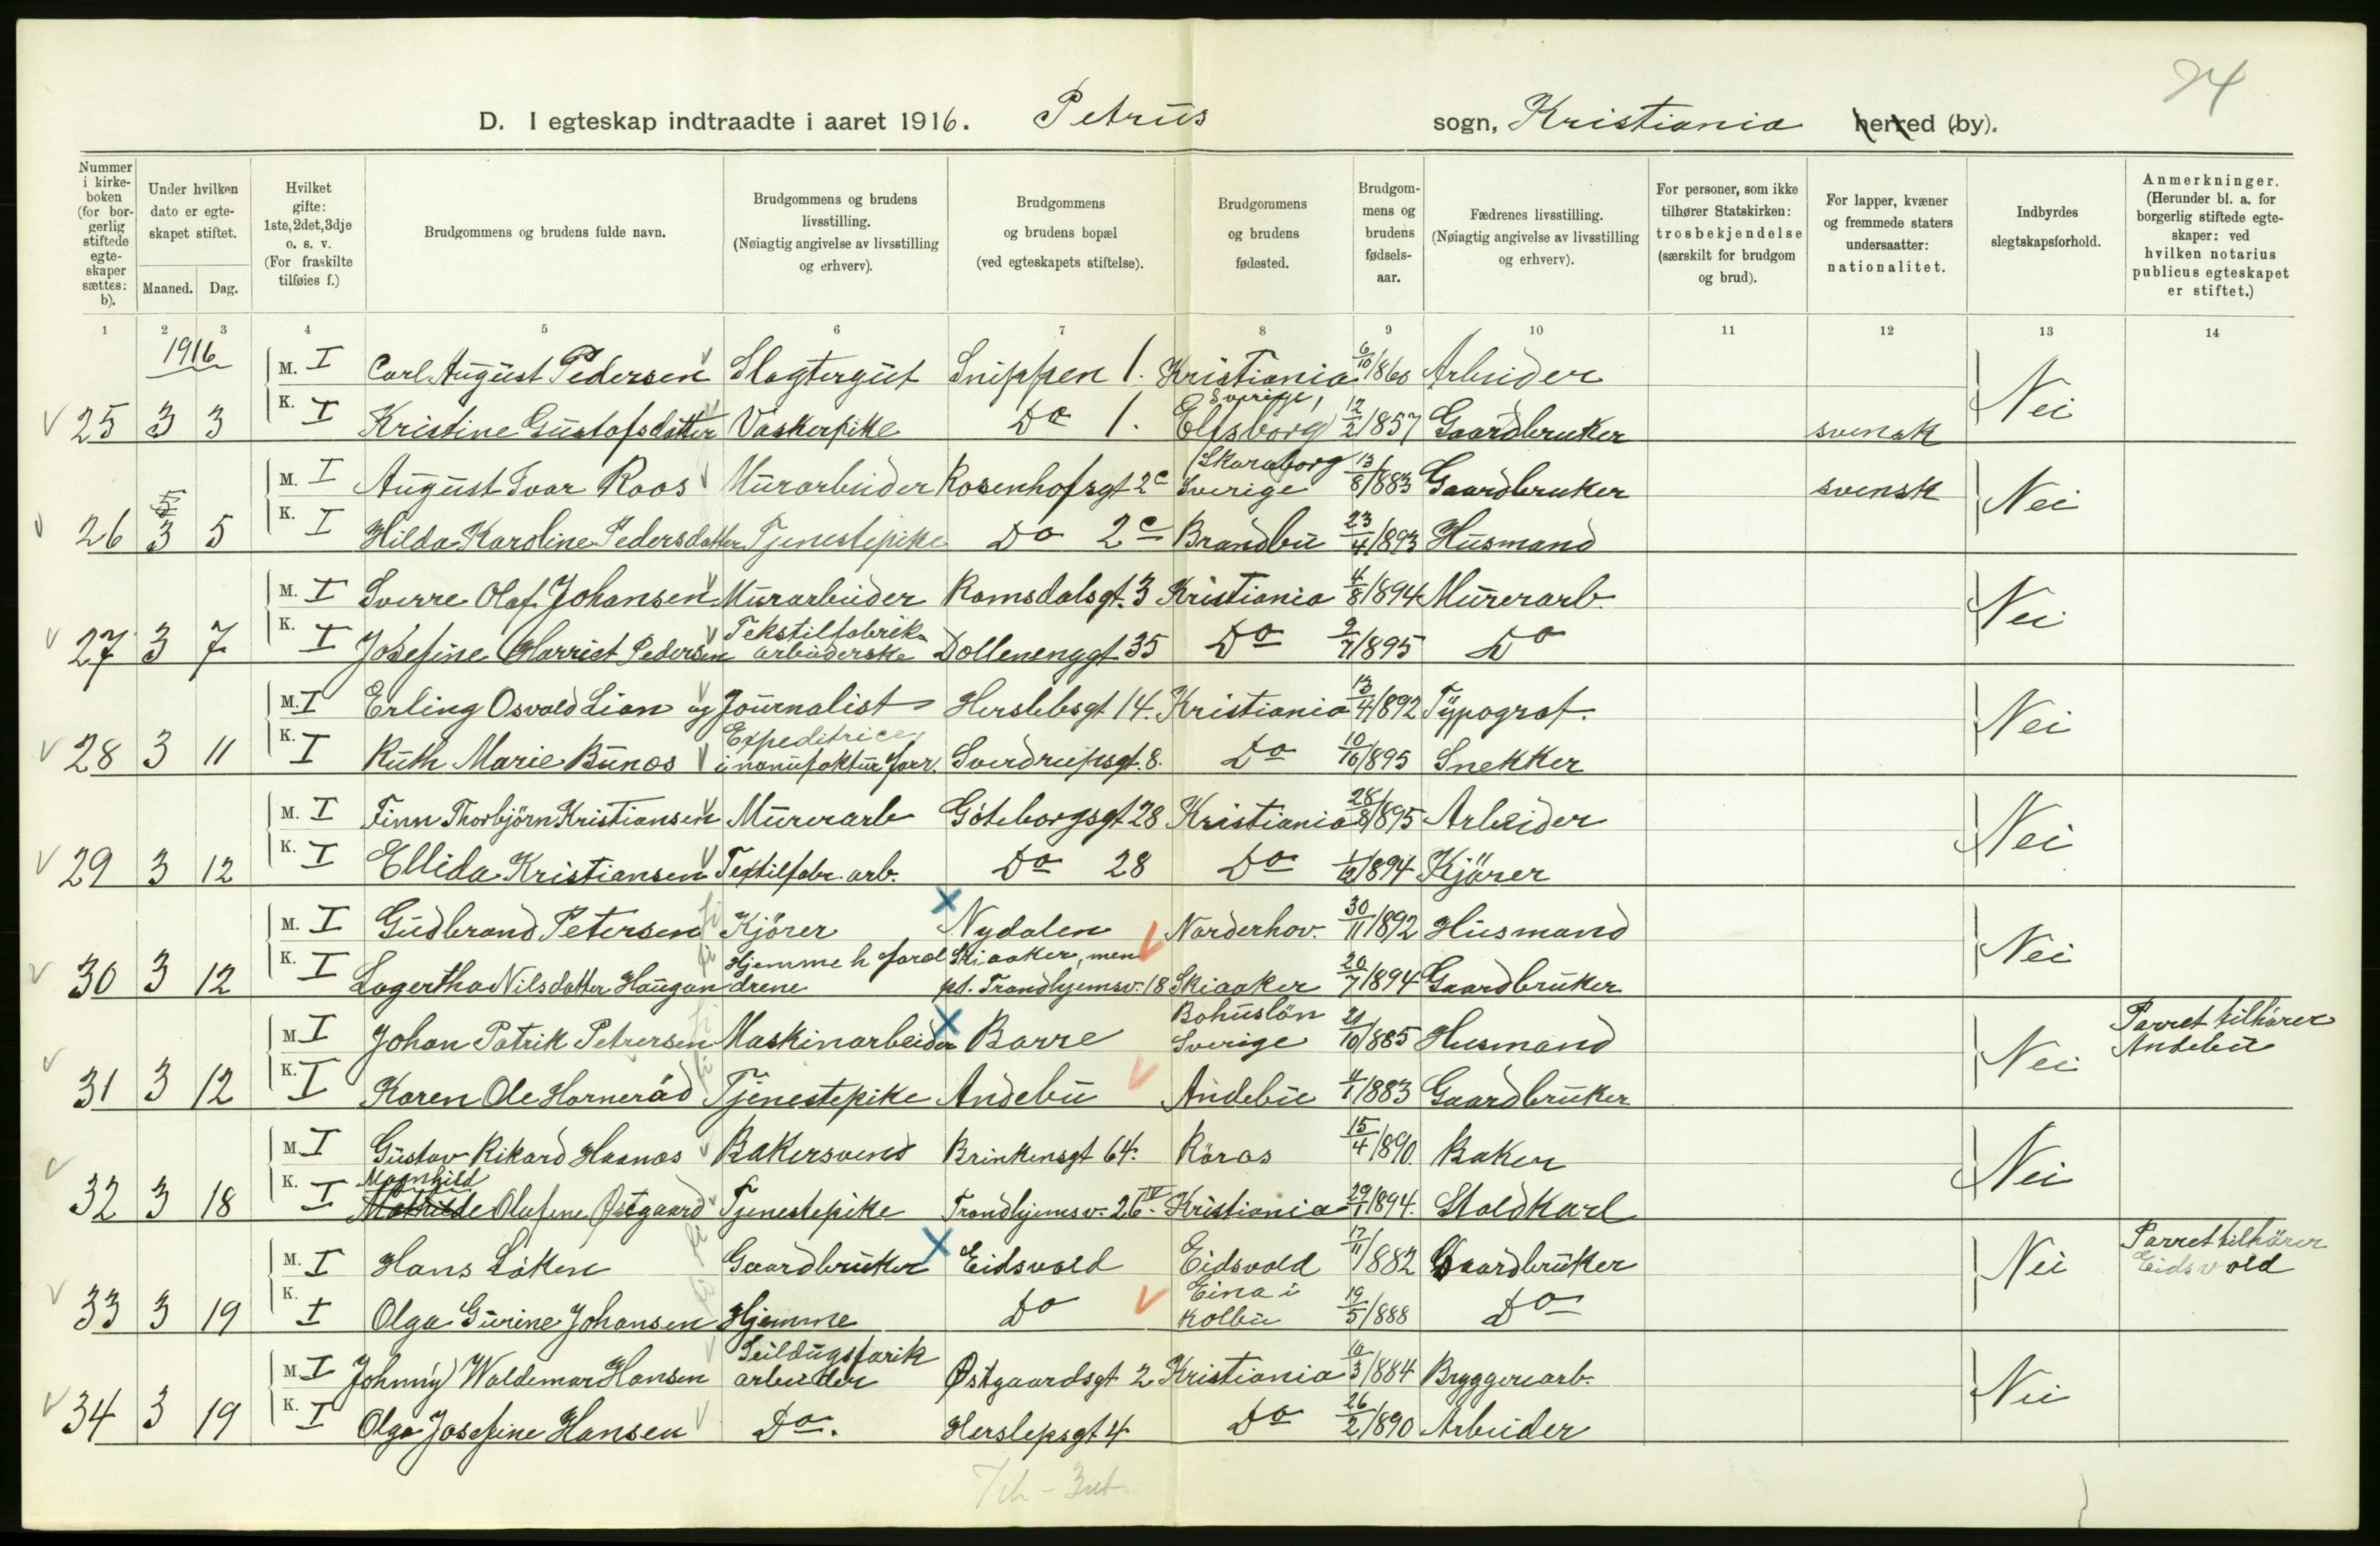 24
D. I egteskap indtraadte i aaret 1916. Petrus sogn, Kristiania herred (by).
Nummer i kirkeboken (for borgerlig stiftede egteskaper sættes: b).
Under hvilken dato er egteskapet stiftet.
Maaned. Dag.
Hvilket gifte: 1ste, 2det, 3dje o. s. v. (For fraskilte tilføies f.)
Brudgommens og brudens fulde navn.
Brudgommens og brudens livsstilling. (Nøiagtig angivelse av livsstilling og erhverv).
Brudgommens og brudens bopæl (ved egteskapets stiftelse).
Brudgommens og brudens fødested.
Brudgommens og brudens fødselsaar.
Fædrenes livsstilling. (Nøiagtig angivelse av livsstilling og erhverv).
For personer, som ikke tilhører Statskirken: trosbekjendelse (særskilt for brudgom og brud).
For lapper, kvæner og fremmede staters undersaatter: nationalitet.
Indbyrdes slegtskapsforhold.
Anmerkninger. (Herunder bl. a. for borgerlig stiftede egteskaper: ved hvilken notarius publicus egteskapet er stiftet.)
1 2 3 4 5 6 7 8 9 10 11 12 13 14
1916
M. I Carl August Pedersen Slagtergut Snippen 1. Kristiania 6/10 1860 Arbeider Nei
25 3 3 K. I Kristine Gustafsdatter Vaskerpike Do 1. Sverige, Elfsborg 12/2 1857 Gaardbruker svensk
M. I August Ivar Roos Murarbeider Rosenhofsgt 2c Skaraborg Sverige 13/8 1883 Gaardbruker svensk Nei
26 3 5 K. I Hilda Karoline Pedersdatter Tjenestepike Do 2c Brandbu 23/4 1893 Husmand
M. I Sverre Olaf Johansen Murarbeider Romsdalsgt. 3 Kristiania 4/8 1894 Murerarb. Nei
27 3 7 K. I Josefine Harriet Pedersen Tekstilfabrik arbeiderske Dælenenggt 35 Do 2/7 1895 Do
M. I Erling Osvald Lian og Journalist Herslebsgt 14. Kristiania 13/4 1892 Typograf. Nei
28 3 11 K. I Ruth Marie Bunæs Expeditrice i manufaktur forr. Sverdrupsgt. 8. Do 10/10 1895 Snekker
M. I Finn Thorbjörn Kristiansen Murerarb Göteborgsgt 28 Kristiania 28/8 1895 Arbeider Nei
29 3 12 K. I Ellida Kristiansen Textilfabr. arb. Do 28 Do 1/12 1894 Kjörer
M. I Gudbrand Petersen Kjörer Nydalen Norderhov. 30/11 1892 Husmand Nei
30 3 12 K. I Lagertha Nilsdatter Haugan Hjemme h foreldrene Skiaaker, men pt. Trondhjemsv. 18 Skiaaker 20/7 1894 Gaardbruker
M. I Johan Patrik Petrersen Maskinarbeider Borre Bohuslän Sverige 21/10 1885 Husmand Nei Parret tilhörer Andebu
31 3 12 K. I Karen Ole Horneräd Tjenestepike Andebu Andebu 4/1 1883 Gaardbruker
M. I Gustav Rikard Haanæs Bakersvend Brinkensgt 64. Röros 15/4 1890. Baker Nei
32 3 18 K. I Magnhild Olufine Østgaard Tjenestepike Trondhjemsv. 26 IV Kristiania 29/1 1894. Staldkarl
M. I Hans Löken Gaardbruker Eidsvold Eidsvold 17/11 1882 Gaardbruker Nei Parret tilhörer Eidsvold
33 3 19 K. I Olga Gurine Johansen Hjemme Do Eina i Kolbu 19/5 1888 Do
M. I Johnny Waldemar Hansen Seildugsfarik arbeider Østgaardsgt 2 Kristiania 10/3 1884 Bryggeriarb. Nei
34 3 19 K. I Olga Josefine Hansen Do. Herslepsgt 4 Do 26/2 1890 Arbeider